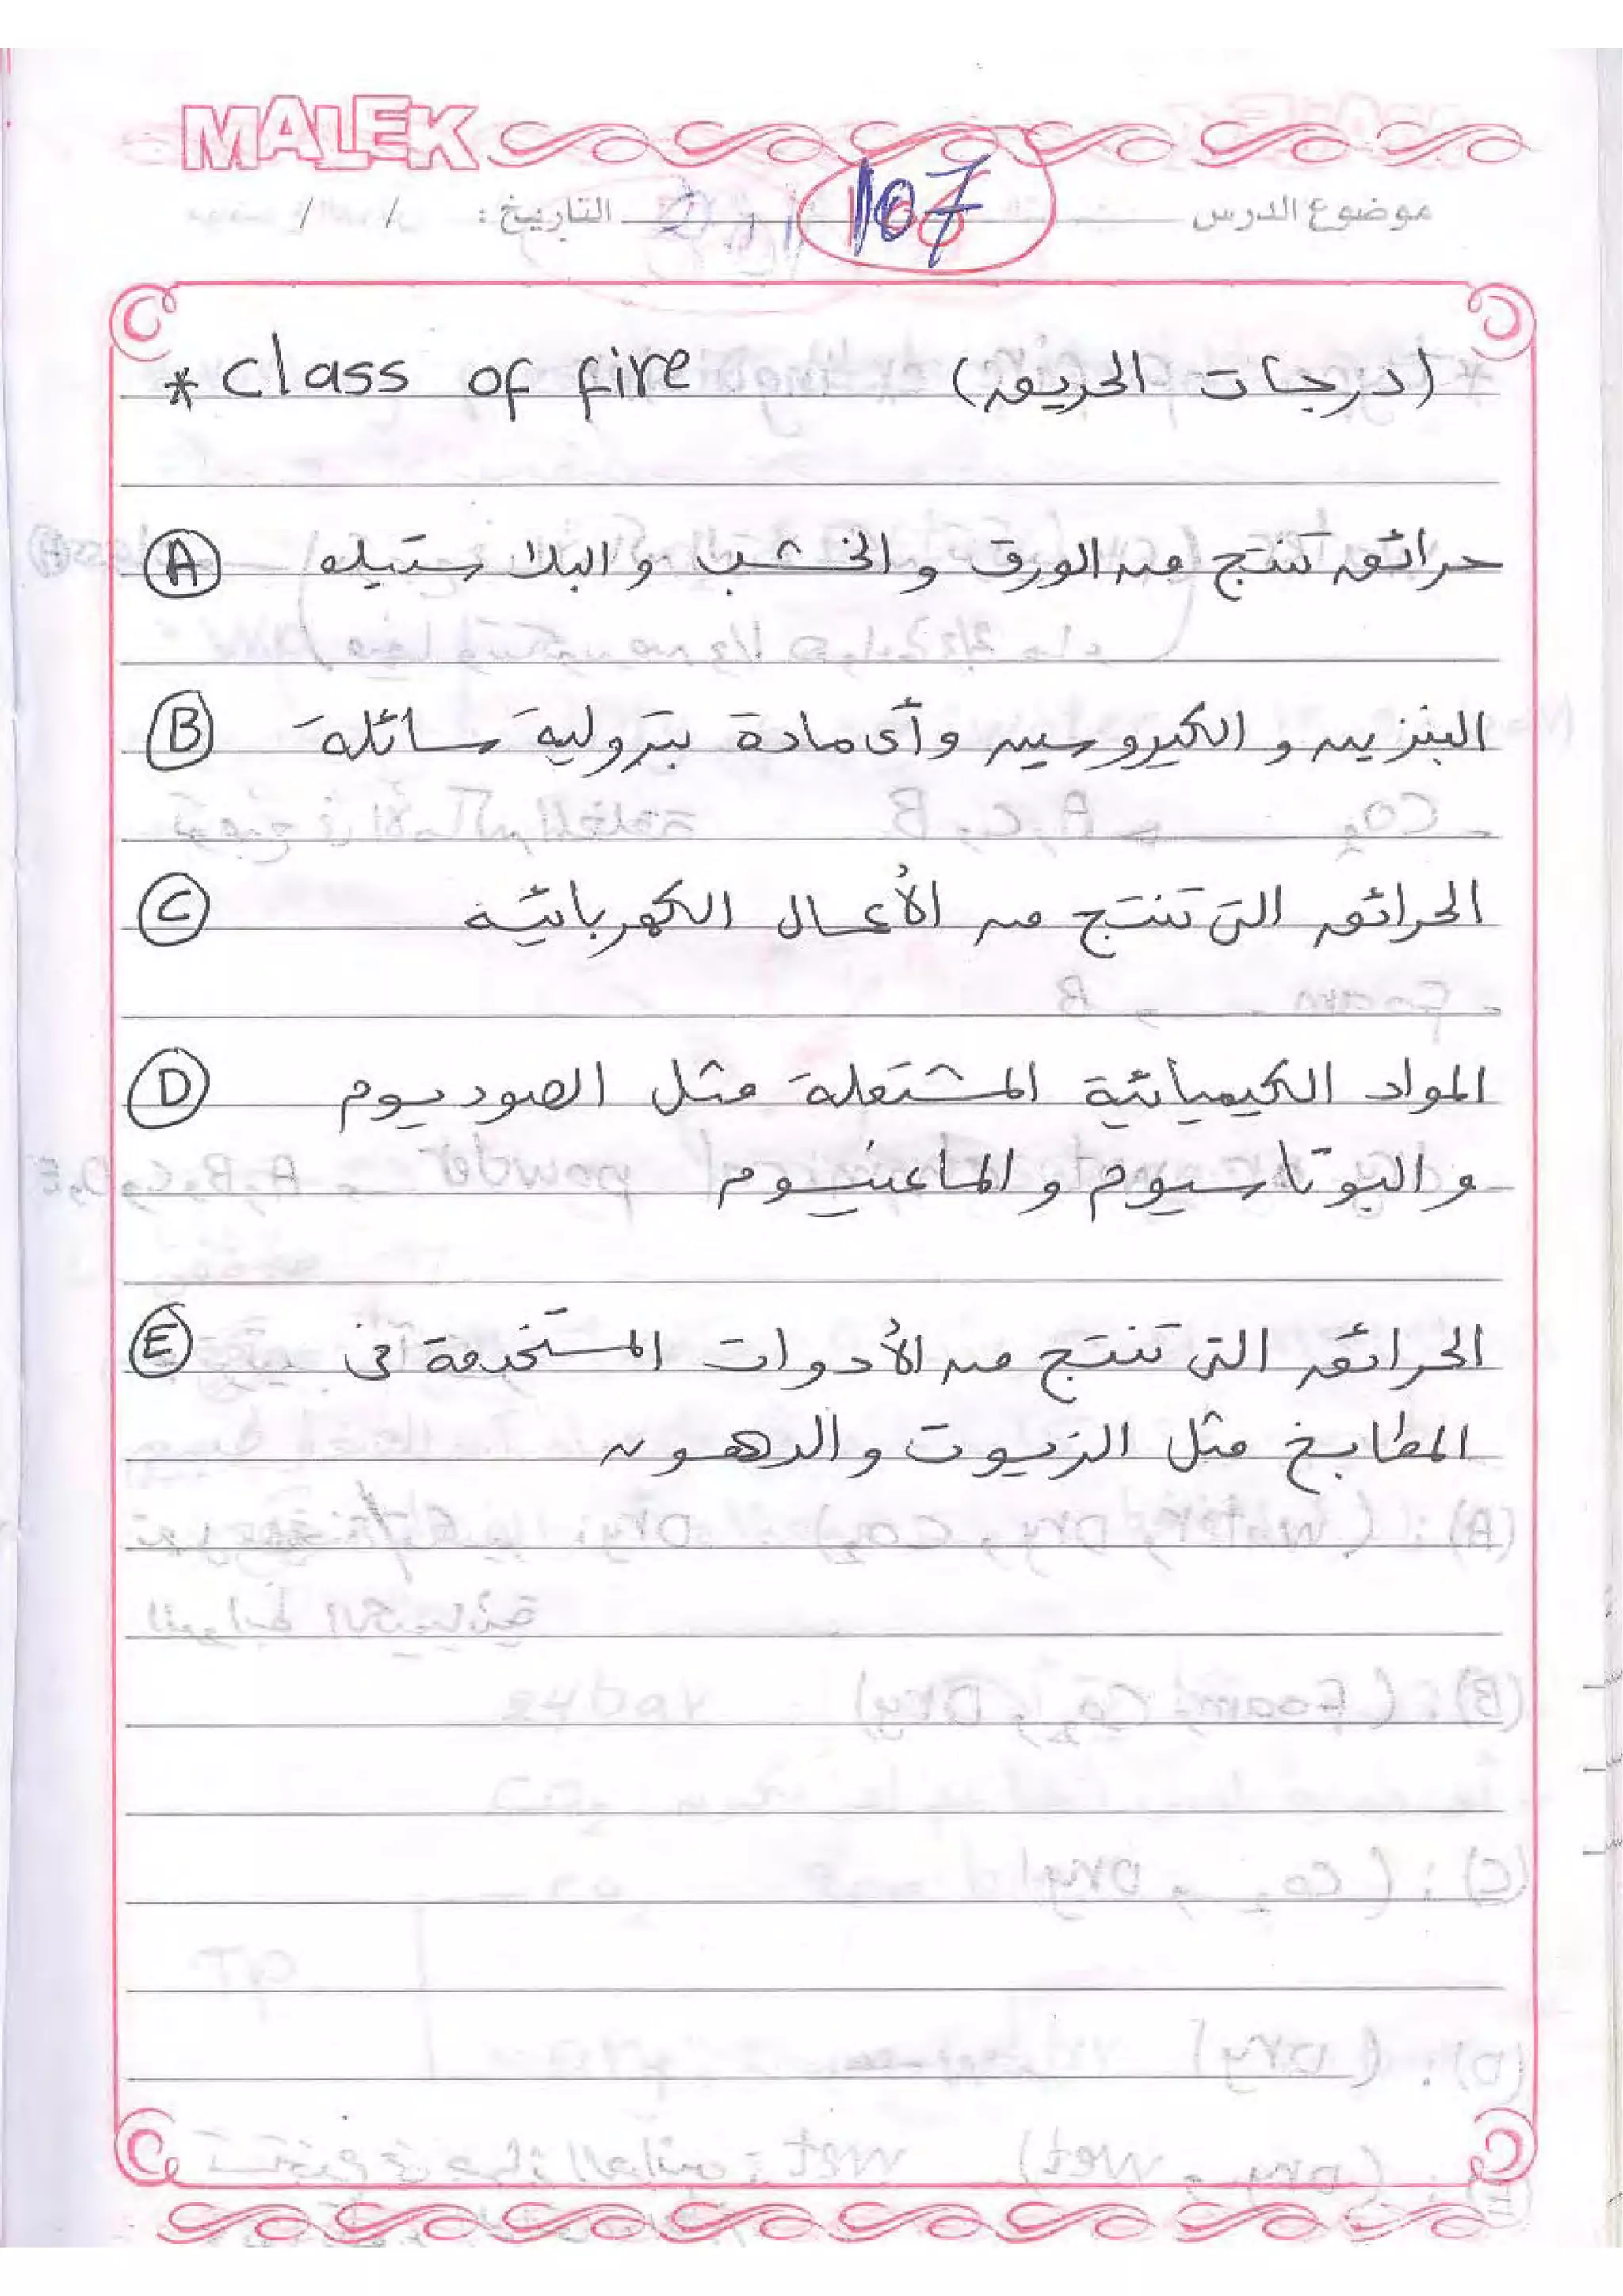 MALEK
موضوع الدرس 107 التاريخ: / /
* class of fire (درجات الحريق)
A حرائق تنتج من الورق والخشب والبلاستيك
B البنزين والكيروسين وأى مادة بترولية سائلة
C الحرائق التى تنتج من الأعمال الكهربائية
D المواد الكيميائية المشتعلة مثل الصوديوم
والبوتاسيوم والماغنسيوم
E الحرائق التى تنتج من الأدوات المستخدمة فى
المطابخ مثل الزيوت والدهون